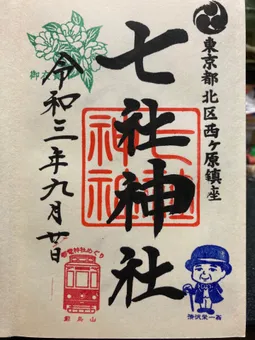 東京都北区西ヶ原鎮座
七社神社
七社
神社
令和三年九月廿日
御
都電神社めぐり
飛鳥山
渋沢栄一翁